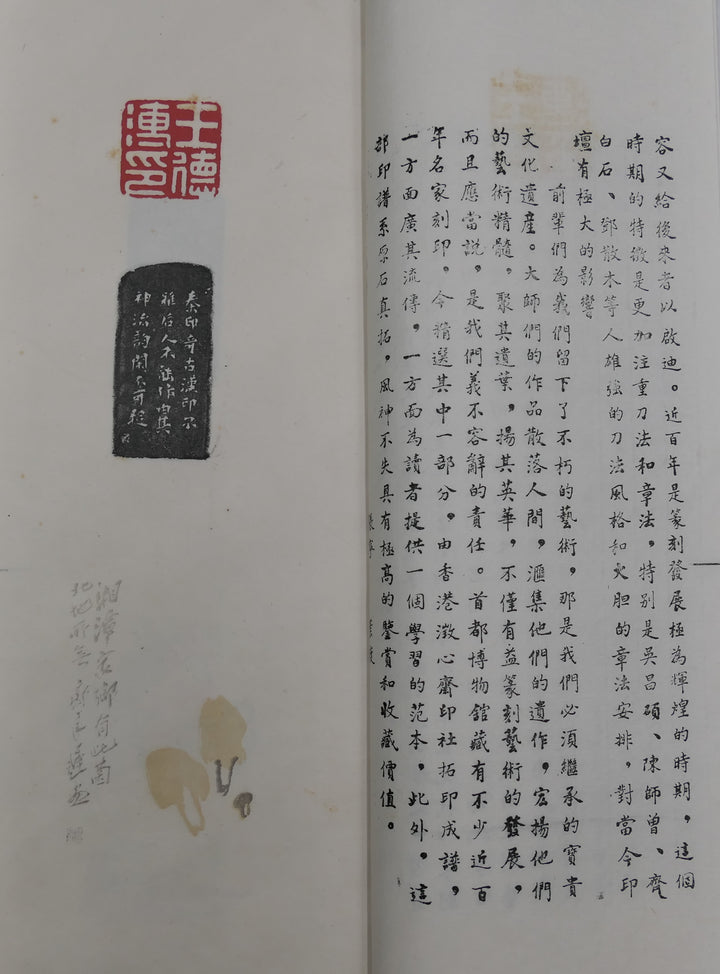 容又給後來者以啟迪。近百年是篆刻發展極為輝煌的時期，這個
時期的特徵是更加注重刀法和章法，特别是吳昌碩、陳師曾、齊
白石、鄧散木等人雄強的刀法風格和大胆的章法安排，對當今印
壇有極大的影響。
前輩們為我們留下了不朽的藝術，那是我們必須繼承的寶貴
文化遺産。大師們的作品散落人間，滙集他們的遺作，宏揚他們
的藝術精髓，聚其遺葉，揚其英華，不僅有益篆刻藝術的發展，
而且應當説，是我們義不容辭的責任。首都博物館藏有不少近百
年名家刻印，今精選其中一部分，由香港澂心齋印社拓印成譜，
一方面廣其流傳，一方面為讀者提供一個學習的范本，此外，這
部印譜系原石真拓，風神不失具有極高的鑒賞和收藏價值。
王德
溥印
秦印奇古漢印不
雅后人不能作由其
神流韵閑不可
湘潭家鄉有此菌
北地所無